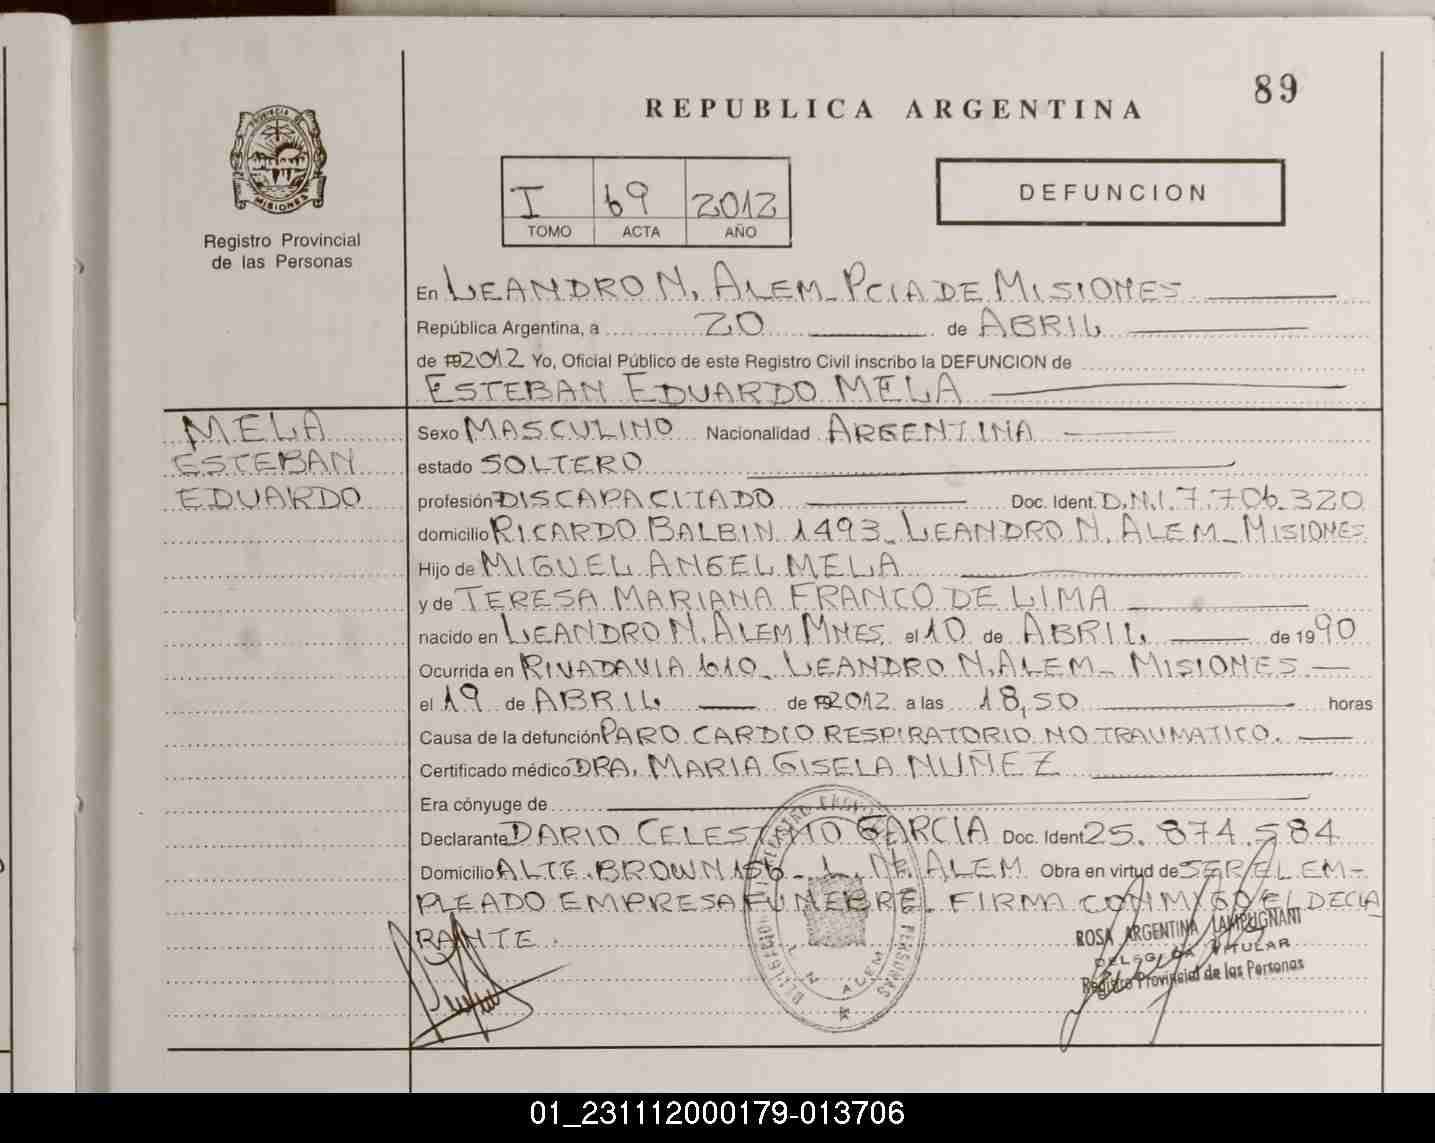 89
REPUBLICA ARGENTINA
PROVINCIA DE
MISIONES
Registro Provincial
de las Personas
I 69 2012
TOMO ACTA AÑO
DEFUNCION
En LEANDRO N. ALEM - PCIA DE MISIONES
República Argentina, a 20 de ABRIL
de 2012 Yo, Oficial Público de este Registro Civil inscribo la DEFUNCION de
ESTEBAN EDUARDO MELA
MELA
ESTEBAN
EDUARDO
Sexo MASCULINO Nacionalidad ARGENTINA
estado SOLTERO
profesión DISCAPACITADO Doc. Ident. D.N.I. 7.706.320
domicilio RICARDO BALBIN 1493 - LEANDRO N. ALEM - MISIONES
Hijo de MIGUEL ANGEL MELA
y de TERESA MARIANA FRANCO DE LIMA
nacido en LEANDRO N. ALEM MNES. el 10 de ABRIL de 1990
Ocurrida en RIVADAVIA 610 - LEANDRO N. ALEM - MISIONES
el 19 de ABRIL de 2012 a las 18,50 horas
Causa de la defunción PARO CARDIO RESPIRATORIO NO TRAUMATICO.
Certificado médico DRA. MARIA GISELA NUÑEZ
Era cónyuge de
Declarante DARIO CELESTINO GARCIA Doc. Ident 25.874.584
Domicilio ALTE. BROWN 156 - L. N. ALEM Obra en virtud de SER EL EM-
PLEADO EMPRESA FUNEBRE. FIRMA CONMIGO EL DECLA
RANTE.
ROSA ARGENTINA LAMPUGNANI
DELEGADA TITULAR
Registro Provincial de las Personas
L. N. ALEM
01_231112000179-013706